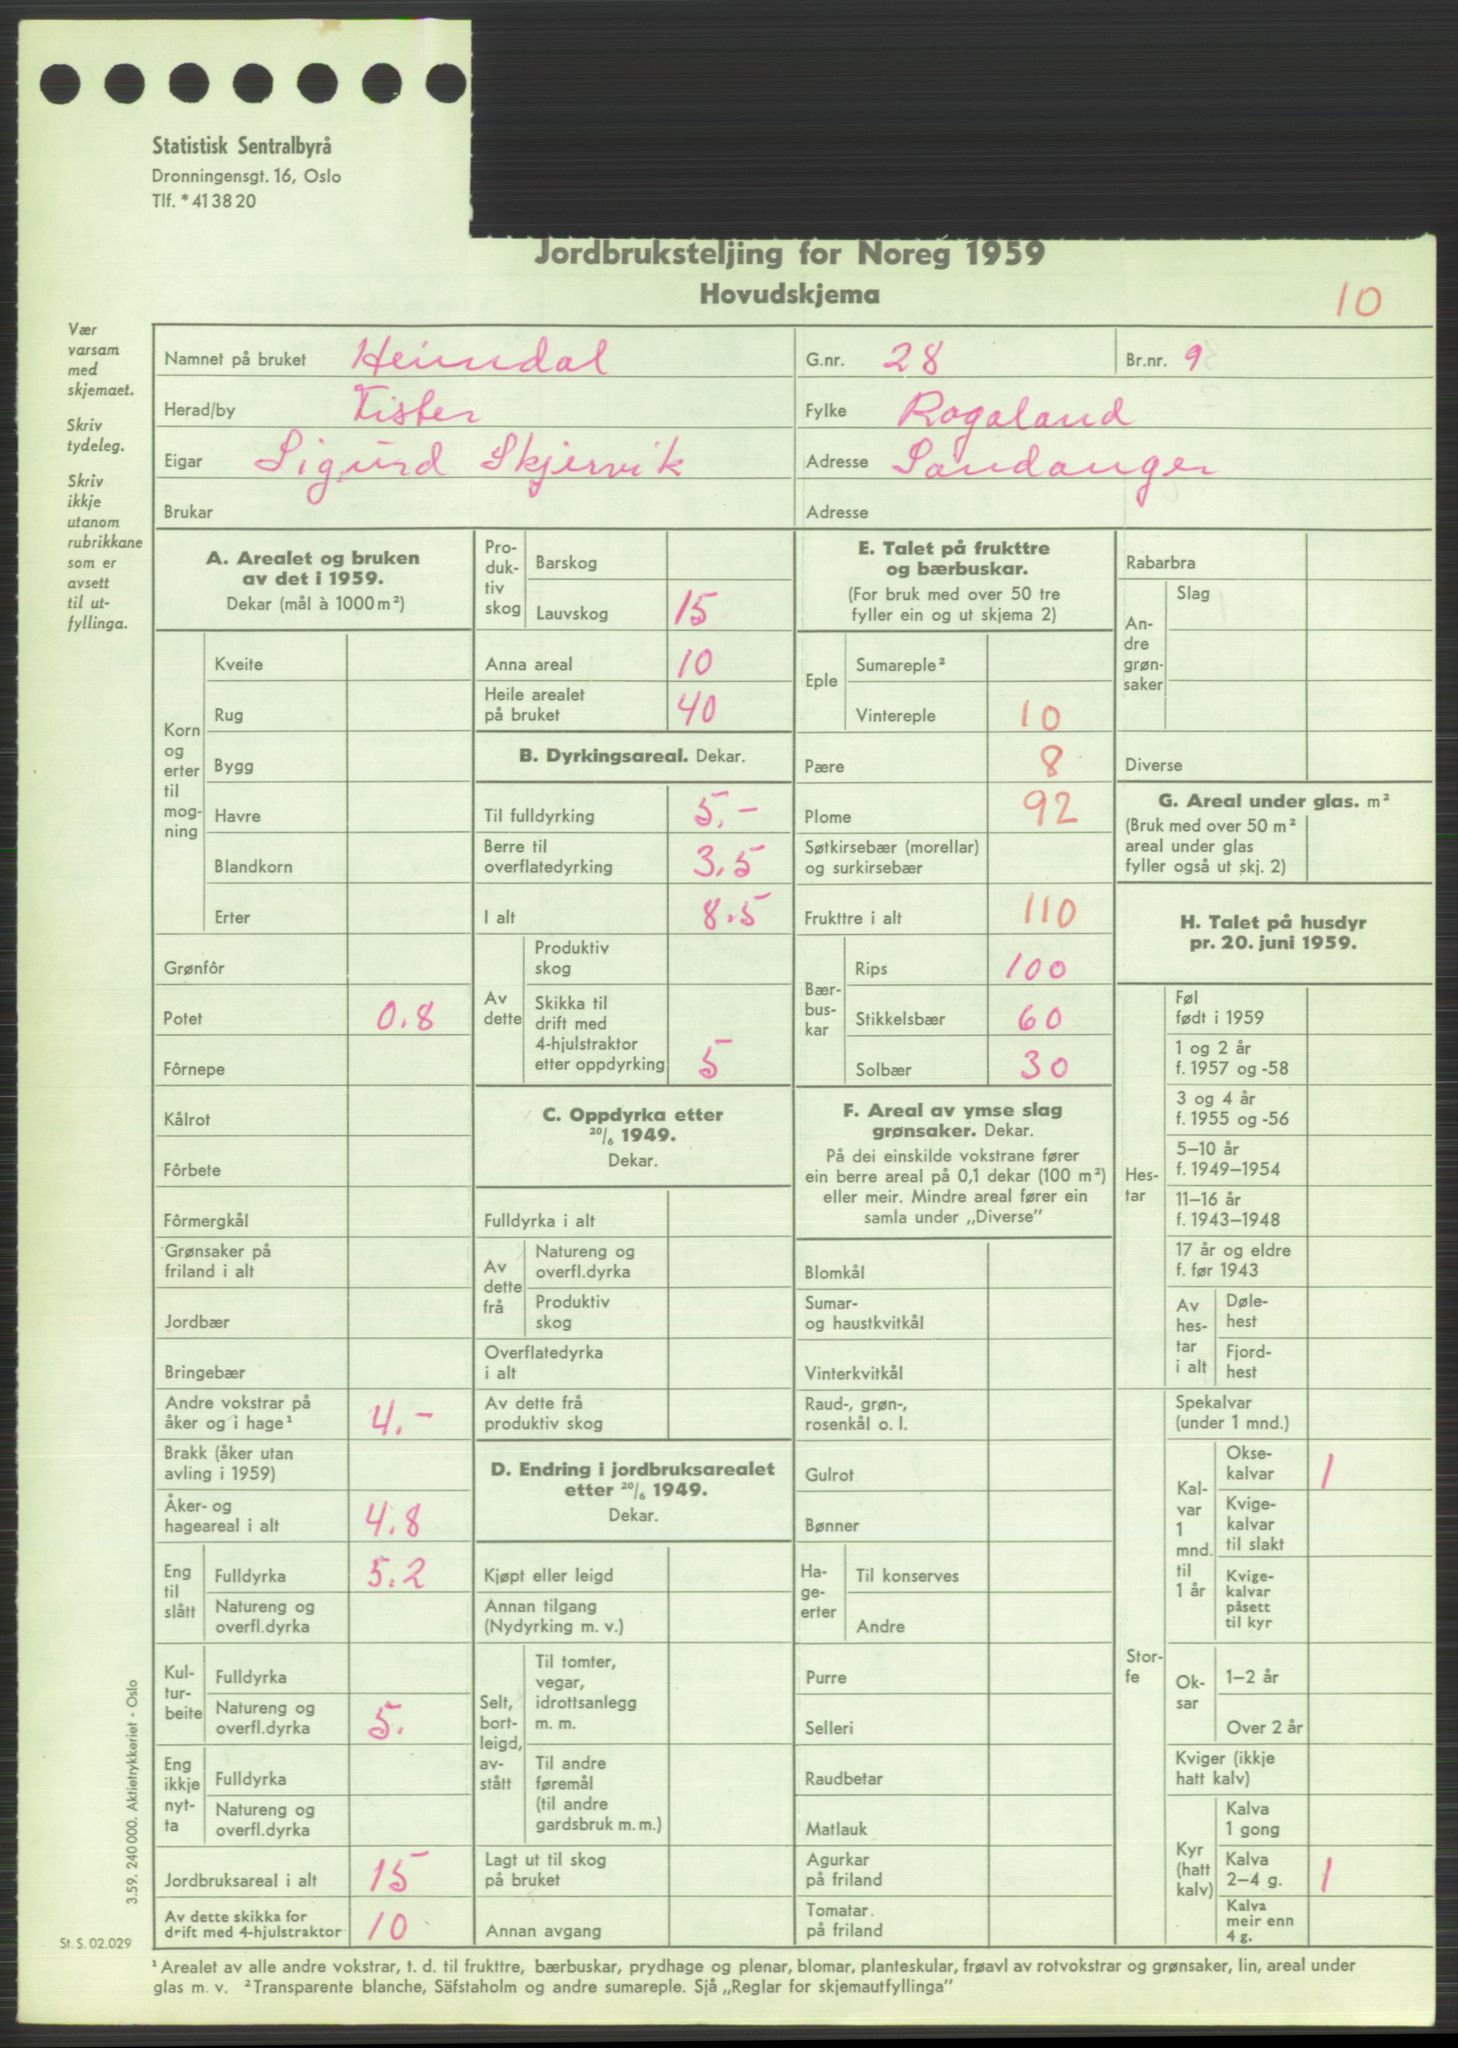 Statistisk Sentralbyrå
Dronningensgt. 16, Oslo
Tlf. * 41 38 20
Jordbruksteljing for Noreg 1959
Hovudskjema
10
Vær
varsam
med
skjemaet.
Skriv
tydeleg.
Skriv
ikkje
utanom
rubrikkane
som er
avsett
til ut-
fyllinga.
Namnet på bruket Heimdal G.nr. 28 Br.nr. 9
Herad/by Fister Fylke Rogaland
Eigar Sigurd Skjervik Adresse Sandanger
Brukar Adresse
A. Arealet og bruken
av det i 1959.
Dekar (mål à 1000 m²)
Korn
og
erter
til
mog-
ning
Kveite
Rug
Bygg
Havre
Blandkorn
Erter
Grønfôr
Potet 0.8
Fôrnepe
Kålrot
Fôrbete
Fôrmergkål
Grønsaker på
friland i alt
Jordbær
Bringebær
Andre vokstrar på
åker og i hage¹ 4.-
Brakk (åker utan
avling i 1959)
Åker- og
hageareal i alt 4.8
Eng
til
slått
Fulldyrka 5.2
Natureng og
overfl.dyrka
Kul-
tur-
beite
Fulldyrka
Natureng og
overfl.dyrka 5.
Eng
ikkje
nyt-
ta
Fulldyrka
Natureng og
overfl.dyrka
Jordbruksareal i alt 15
Av dette skikka for
drift med 4-hjulstraktor 10
Pro-
duk-
tiv
skog
Barskog
Lauvskog 15
Anna areal 10
Heile arealet
på bruket 40
B. Dyrkingsareal. Dekar.
Til fulldyrking 5.-
Berre til
overflatedyrking 3,5
I alt 8.5
Av
dette
Produktiv
skog
Skikka til
drift med
4-hjulstraktor
etter oppdyrking 5
C. Oppdyrka etter
20/6 1949.
Dekar.
Fulldyrka i alt
Av
dette
frå
Natureng og
overfl.dyrka
Produktiv
skog
Overflatedyrka
i alt
Av dette frå
produktiv skog
D. Endring i jordbruksarealet
etter 20/6 1949.
Dekar.
Kjøpt eller leigd
Annan tilgang
(Nydyrking m. v.)
Selt,
bort-
leigd,
av-
stått
Til tomter,
vegar,
idrottsanlegg
m. m.
Til andre
føremål
(til andre
gardsbruk m. m.)
Lagt ut til skog
på bruket
Annan avgang
E. Talet på frukttre
og bærbuskar.
(For bruk med over 50 tre
fyller ein og ut skjema 2)
Eple
Sumareple²
Vintereple 10
Pære 8
Plome 92
Søtkirsebær (morellar)
og surkirsebær
Frukttre i alt 110
Bær-
bus-
kar
Rips 100
Stikkelsbær 60
Solbær 30
F. Areal av ymse slag
grønsaker. Dekar.
På dei einskilde vokstrane fører
ein berre areal på 0,1 dekar (100 m²)
eller meir. Mindre areal fører ein
samla under „Diverse”
Blomkål
Sumar-
og haustkvitkål
Vinterkvitkål
Raud-, grøn-,
rosenkål o. l.
Gulrot
Bønner
Ha-
ge-
erter
Til konserves
Andre
Purre
Selleri
Raudbetar
Matlauk
Agurkar
på friland
Tomatar
på friland
Rabarbra
An-
dre
grøn-
saker
Slag
Diverse
G. Areal under glas. m²
(Bruk med over 50 m²
areal under glas
fyller også ut skj. 2)
H. Talet på husdyr
pr. 20. juni 1959.
Hes-
tar
Føl
født i 1959
1 og 2 år
f. 1957 og -58
3 og 4 år
f. 1955 og -56
5–10 år
f. 1949–1954
11–16 år
f. 1943–1948
17 år og eldre
f. før 1943
Av
hes-
tar
i alt
Døle-
hest
Fjord-
hest
Stor-
fe
Spekalvar
(under 1 mnd.)
Kal-
var
1
mnd.
til
1 år
Okse-
kalvar 1
Kvige-
kalvar
til slakt
Kvige-
kalvar
påsett
til kyr
Ok-
sar
1–2 år
Over 2 år
Kviger (ikkje
hatt kalv)
Kyr
(hatt
kalv)
Kalva
1 gong
Kalva
2–4 g. 1
Kalva
meir enn
4 g.
3.59. 240 000. Aktietrykkeriet - Oslo
St. S. 02.029
¹ Arealet av alle andre vokstrar, t. d. til frukttre, bærbuskar, prydhage og plenar, blomar, planteskular, frøavl av rotvokstrar og grønsaker, lin, areal under
glas m. v. ² Transparente blanche, Säfstaholm og andre sumareple. Sjå „Reglar for skjemautfyllinga”